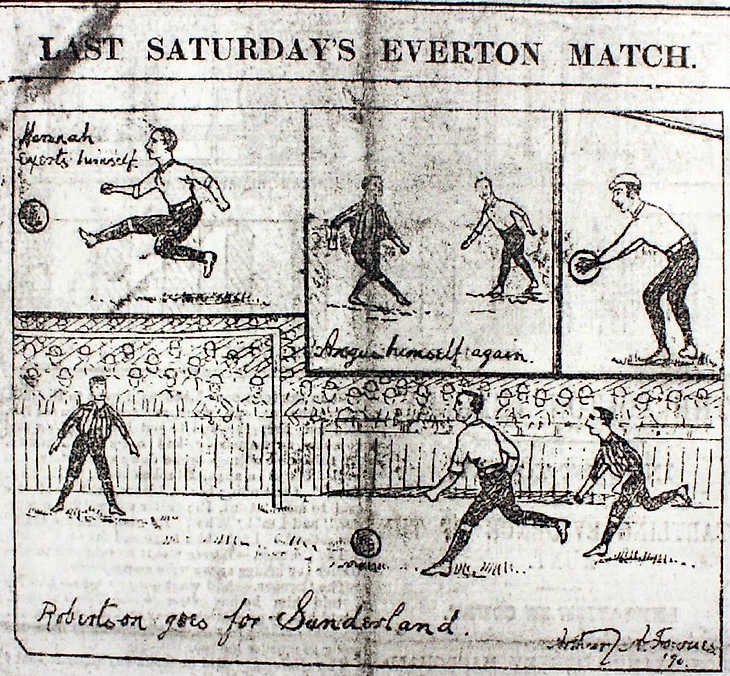 LAST SATURDAY'S EVERTON MATCH.
Hannah
exerts himself.
Angus himself again.
Robertson goes for Sunderland.
Arthur A.
'90.